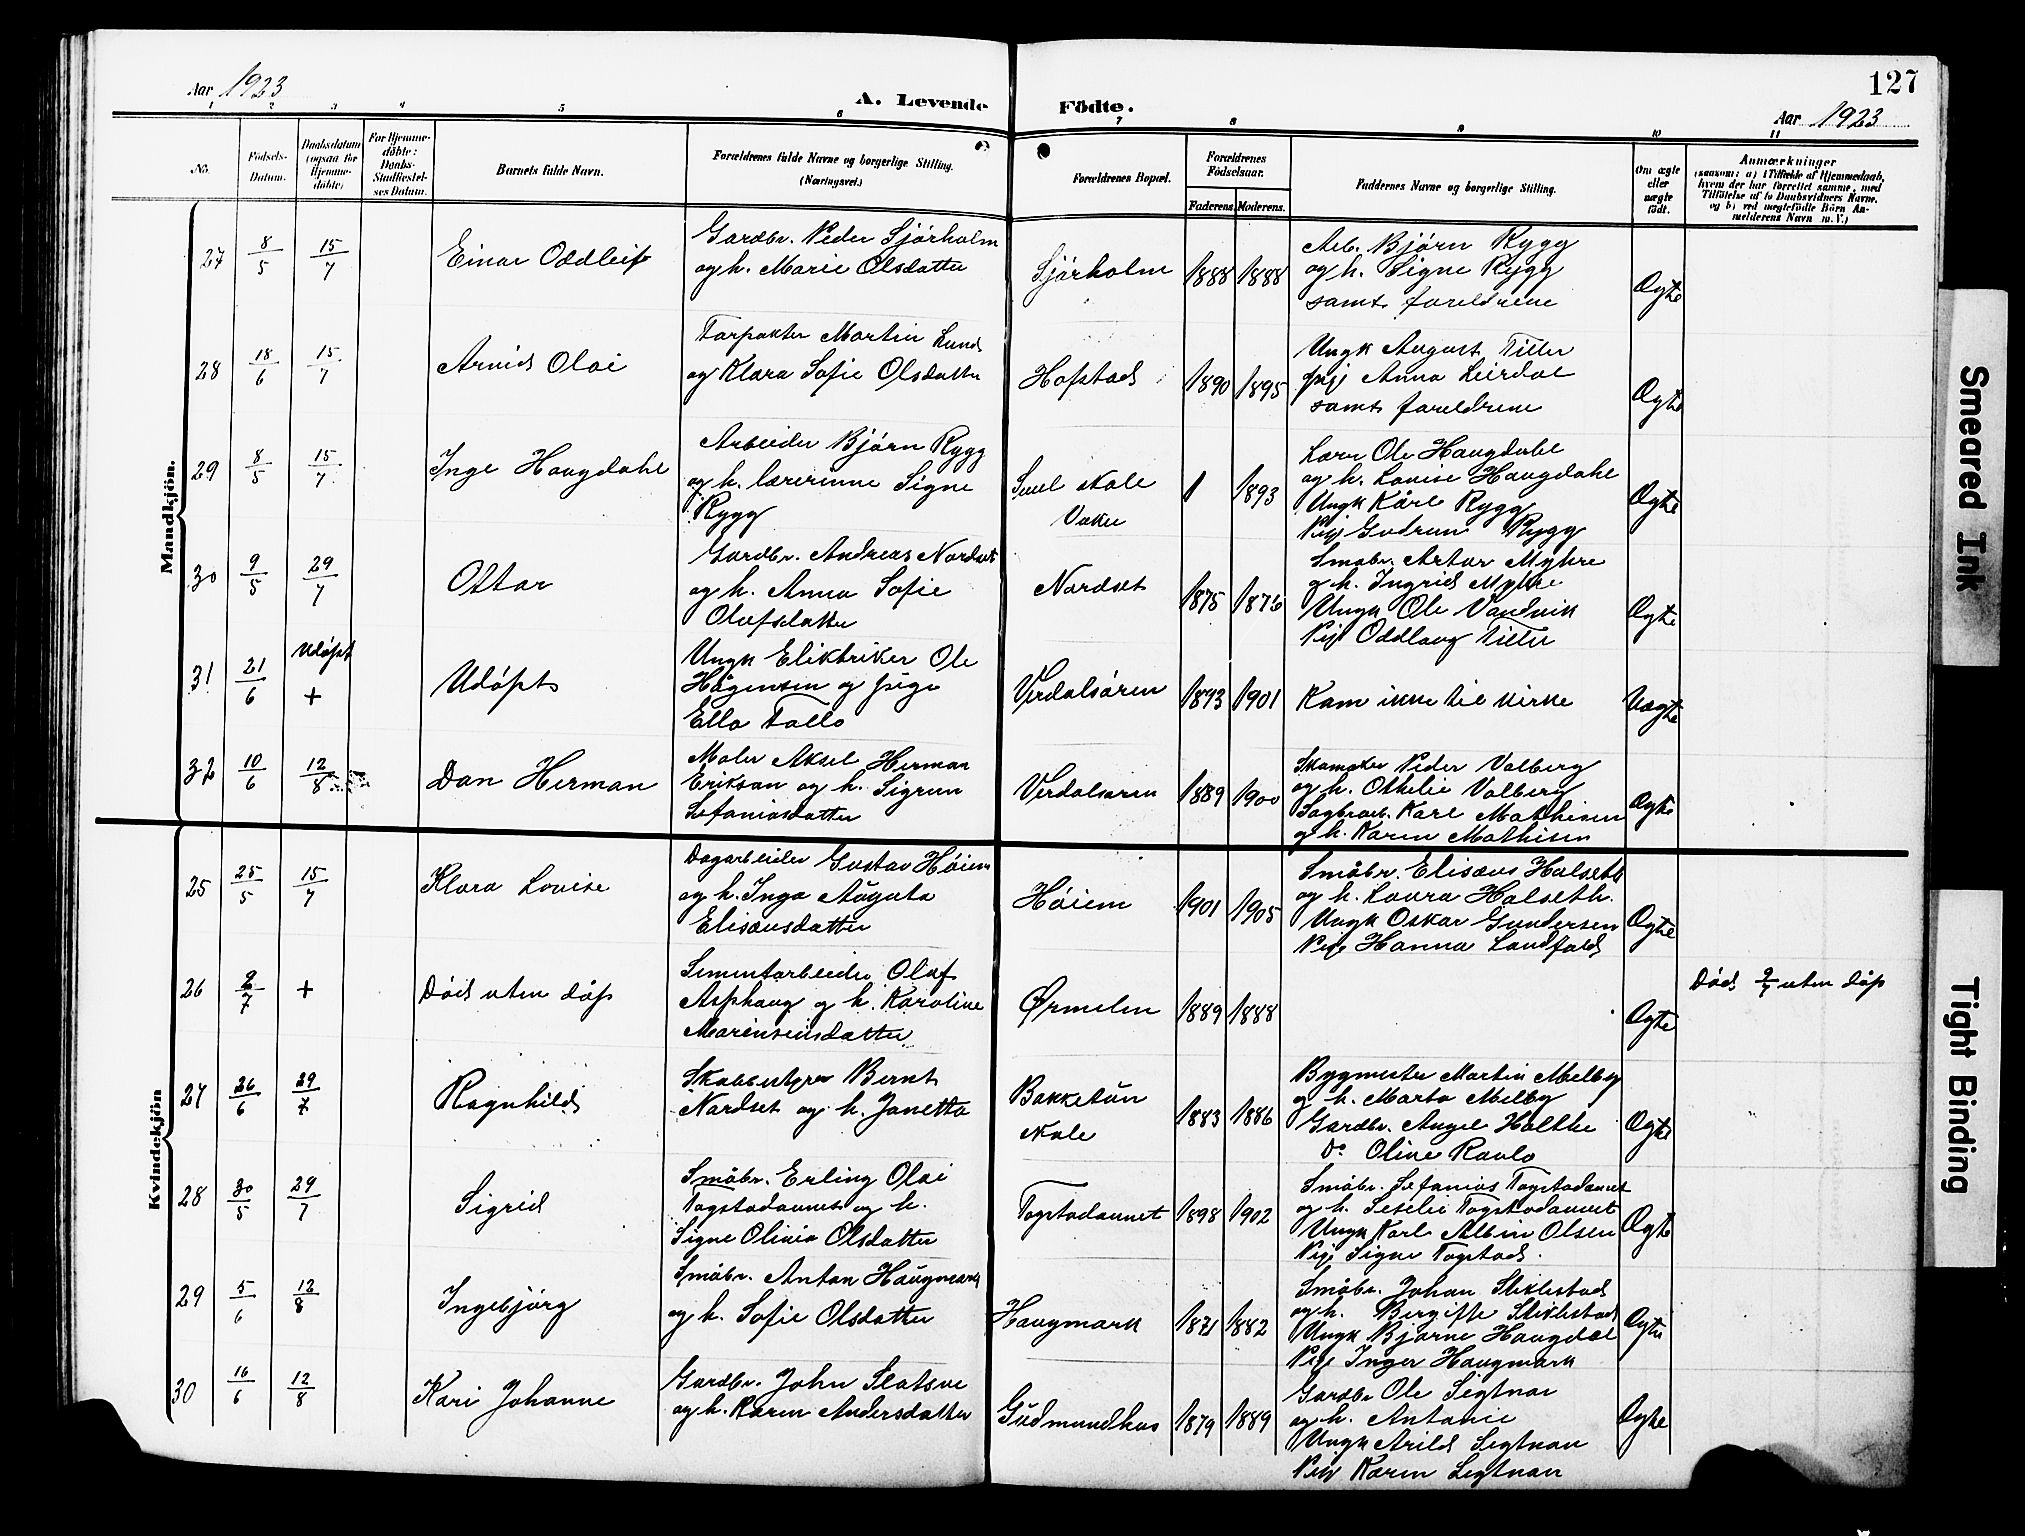 127
Aar 1923
A. Levende Födte.
Aar 1923
1 2 3 4 5 6 7 8 9 10 11
No.
Födsels-
Datum.
Daabsdatum
(ogsaa for
Hjemme-
döbte)
For Hjemme-
döbte:
Daabs-
Stadfæstel-
ses Datum.
Barnets fulde Navn.
Forældrenes fulde Navne og borgerlige Stilling.
(Næringsvei.)
Forældrenes Bopæl.
Forældrenes
Födselsaar.
Faderens. Moderens.
Faddernes Navne og borgerlige Stilling.
Om ægte
eller
uægte
födt.
Anmærkninger
(saasom: a) i Tilfælde af Hjemmedaab,
hvem der har forrettet samme, med
Tilföielse af to Daabsvidners Navne,
og b) ved uægtefödte Börn An-
melderens Navn m. V.)
Mandkjön.
27 8/5 15/7 Einar Oddleif
Gardbr. Peder Sjørholm
og h. Marie Olsdatter
Sjørholm 1888 1888
Arb. Bjørn Rygg
og h. Signe Rygg
samt foreldrene
Ægte
28 18/6 15/7 Arvid Olai
Forpakter Martin Lund
og Klara Sofie Olsdatter
Hofstad 1890 1895
Ungk August Tiller
pige Anna Leirdal
samt foreldrene
Ægte
29 8/5 15/7 Inge Haugdahl
Arbeider Bjørn Rygg
og h. lærerinne Signe
Rygg
skole
1893
Lærer Ole Haugdahl
og h. Lovise Haugdahl
Ungk Kåre Rygg
Pige Gudrun Rygg
Ægte
30 9/5 29/7 Ottar
Gardbr. Andreas Nordset
og h. Anna Sofie
Olafsdatter
Nordset 1875 1876
Småbr. Artur Myhre
og h. Ingrid Myhre
Ungk Ole Vandvik
Pige Oddlaug Tiller
Ægte
31 21/6 Udøpt + Udøpt
Ungk Eliktriker Ole
Hågensen og pige
Ella Tallo
Verdalsøren 1893 1901
Kam ikke til kirke
Uægte
32 10/6 12/8 Dan Herman
Maler Aksel Herman
Erikson og h. Sigrun
Sefaniasdatter
Verdalsøren 1889 1900
Skomaker Peder Valberg
og h. Othelie Valberg
Sagbruarb. Karl Mathisen
og h. Karen Mathisen
Ægte
Kvindekjön
25 25/5 15/7 Klara Lovise
Dagarbeider Gustav Høiem
og h. Inga Augusta
Elisæusdatter
Høiem 1901 1905
Småbr. Elisæus Halseth
og h. Laura Halseth.
Ungk Oskar Gundersen
Pige Hanna Landfald
Ægte
26 2/7 + Død uten dåp
Sementarbeider Olaf
Asphaug og h. Karoline
Marensiusdatter
Ørmelen 1889 1888
Ægte
Død 2/7 uten dåp
27 26/6 29/7 Ragnhild
Skolebestyrer Bernt
Nordset og h. Janetta
Bakketun
skole
1883 1886
Bygmester Martin Melby
og h. Marta Melby
Gardbr. Angel Holthe
Do Oline Ravlo
Ægte
28 30/5 29/7 Sigrid
Småbr. Erling Olai
Togstadaunet og h.
Signe Olivia Olsdatter
Togstadaunet 1898 1902
Småbr. Sefanias Togstadaunet
og h. Seselie Togstadaunet
Ungk Karl Albin Olsen
Pige Signe Togstad.
Ægte
29 5/6 12/8 Ingebjørg
Småbr. Anton Haugmark
og h. Sofie Olsdatter
Haugmark 1871 1882
Småbr. Johan Stiklestad
og h. Bergitte Stiklestad
Ungk Bjarne Haugdal
Pige Inger Haugmark
Ægte
30 16/6 12/8 Kari Johanne
Gardbr. John Slotsve
og h. Karen Andersdatter
Gudmundhus 1879 1889
Gardbr Ole Segtnan
og h. Antonie
Ungk Arild Segtnan
Pige Karen Segtnan
Ægte
Smeared Ink
Tight Binding